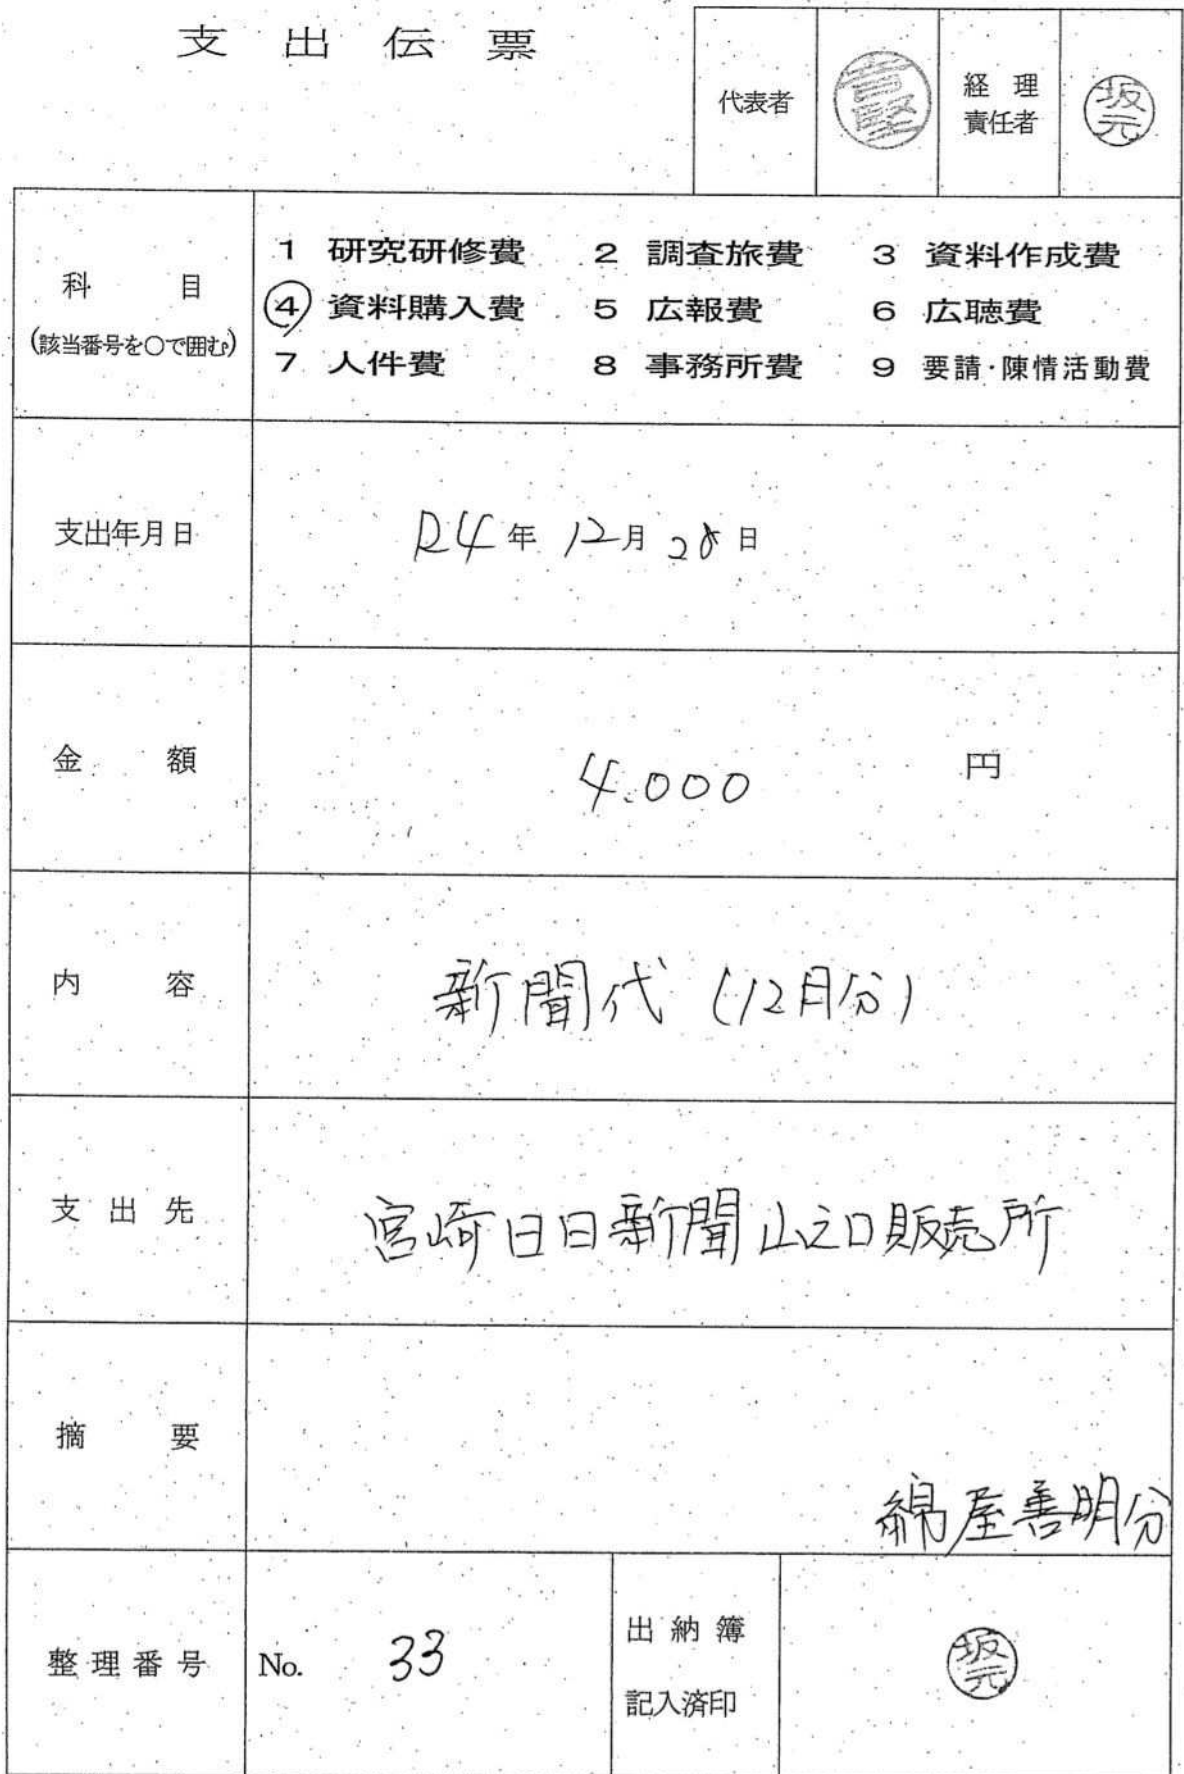 支出伝票
代表者
経理
責任者
坂元
科目
(該当番号を○で囲む)
1 研究研修費 2 調査旅費 3 資料作成費
④ 資料購入費 5 広報費 6 広聴費
7 人件費 8 事務所費 9 要請・陳情活動費
支出年月日
R4年12月28日
金額
4.000 円
内容
新聞代(12月分)
支出先
宮崎日日新聞山之口販売所
摘要
綿屋善明分
整理番号
No. 33
出納簿
記入済印
坂元